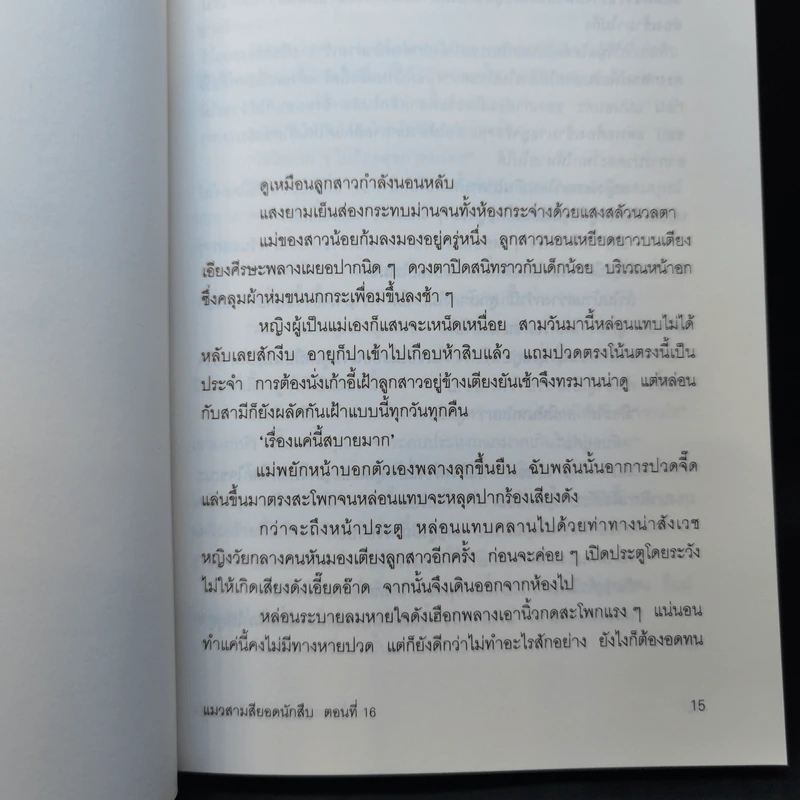 ดูเหมือนลูกสาวกำลังนอนหลับ
แสงยามเย็นส่องกระทบม่านจนทั้งห้องกระจ่างด้วยแสงสลัวนวลตา
แม่ของสาวน้อยก้มลงมองอยู่ครู่หนึ่ง ลูกสาวนอนเหยียดยาวบนเตียง
เอียงศีรษะพลางเผยอปากนิด ๆ ดวงตาปิดสนิทราวกับเด็กน้อย บริเวณหน้าอก
ซึ่งคลุมผ้าห่มขนนกกระเพื่อมขึ้นลงช้า ๆ
หญิงผู้เป็นแม่เองก็แสนจะเหน็ดเหนื่อย สามวันมานี้หล่อนแทบไม่ได้
หลับเลยสักงีบ อายุก็ปาเข้าไปเกือบห้าสิบแล้ว แถมปวดตรงโน้นตรงนี้เป็น
ประจำ การต้องนั่งเก้าอี้เฝ้าลูกสาวอยู่ข้างเตียงยันเช้าจึงทรมานน่าดู แต่หล่อน
กับสามีก็ยังผลัดกันเฝ้าแบบนี้ทุกวันทุกคืน
'เรื่องแค่นี้สบายมาก'
แม่พยักหน้าบอกตัวเองพลางลุกขึ้นยืน ฉับพลันนั้นอาการปวดจี๊ด
แล่นขึ้นมาตรงสะโพกจนหล่อนแทบจะหลุดปากร้องเสียงดัง
กว่าจะถึงหน้าประตู หล่อนแทบคลานไปด้วยท่าทางน่าสังเวช
หญิงวัยกลางคนหันมองเตียงลูกสาวอีกครั้ง ก่อนจะค่อย ๆ เปิดประตูโดยระวัง
ไม่ให้เกิดเสียงดังเอี๊ยดอ๊าด จากนั้นจึงเดินออกจากห้องไป
หล่อนระบายลมหายใจดังเฮือกพลางเอานิ้วกดสะโพกแรง ๆ แน่นอน
ทำแค่นี้คงไม่มีทางหายปวด แต่ก็ยังดีกว่าไม่ทำอะไรสักอย่าง ยังไงก็ต้องอดทน
แมวสามสียอดนักสืบ ตอนที่ 16 15